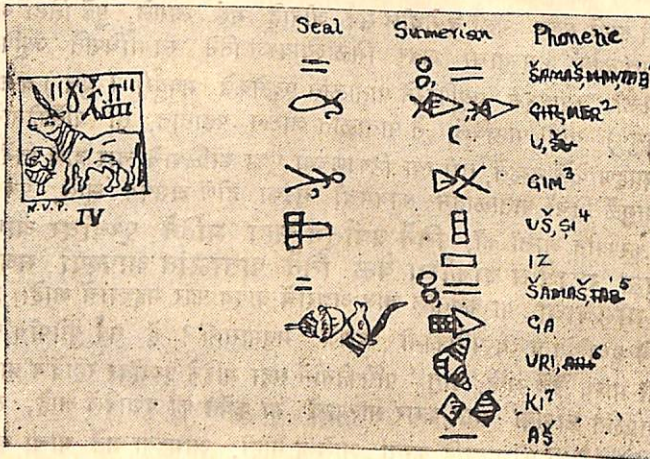 Seal Sumerian Phonetic
ŠAMAŠ, MAN, TAB
GIR, MER 2
U, ŠU
GIM 3
UŠ, ŞI 4
IZ
ŠAMAŠ TAB 5
GA
URI, 6
KI 7
AŠ
N.V.P.
IV